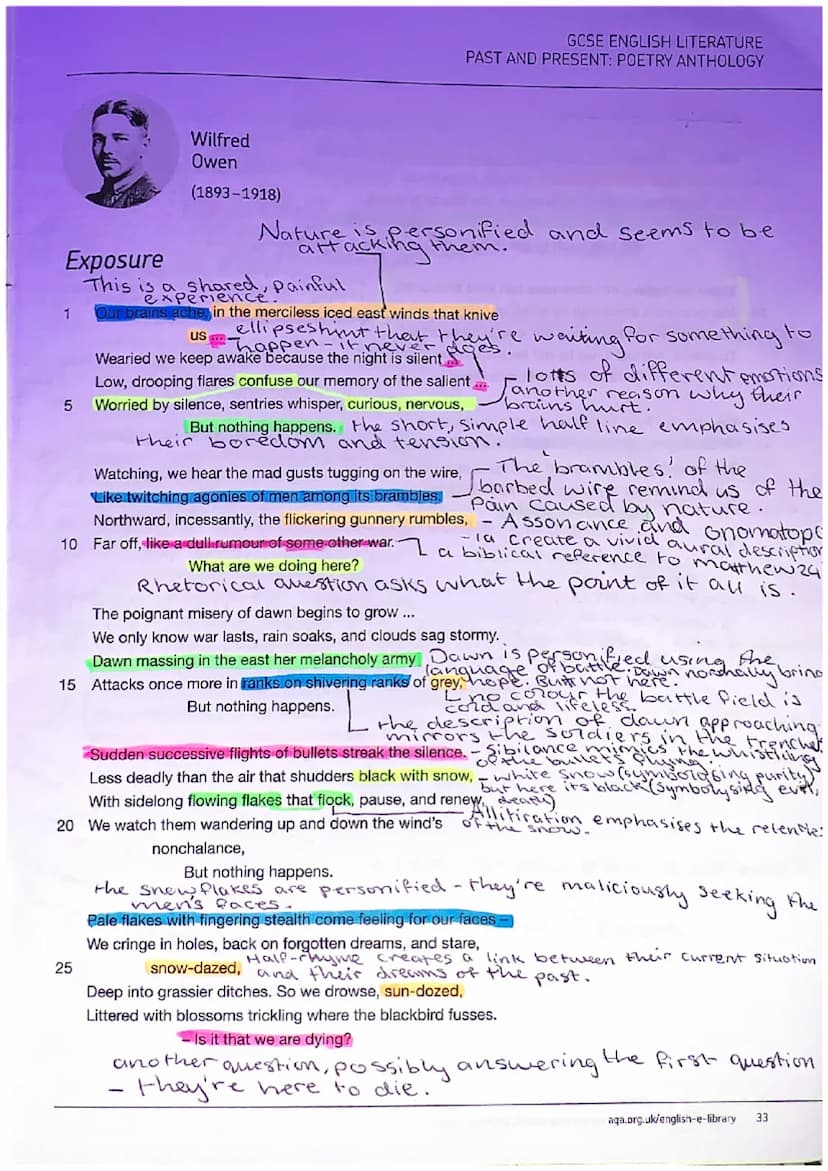 GCSE ENGLISH LITERATURE
PAST AND PRESENT: POETRY ANTHOLOGY
Wilfred
Owen
(1893–1918)
Nature is personified and seems to be
attacking them.
Exposure
This is a shared, painful
experience.
1 Our brains ache, in the merciless iced east winds that knive
us ... ellipses hint that they're waiting for something to
happen - it never does.
Wearied we keep awake because the night is silent ...
Low, drooping flares confuse our memory of the salient ...
lots of different emotions
another reason why their
brains hurt.
5 Worried by silence, sentries whisper, curious, nervous,
But nothing happens. the short, simple half line emphasises
their boredom and tension.
Watching, we hear the mad gusts tugging on the wire,
The 'brambles' of the
barbed wire remind us of the
pain caused by nature.
Like twitching agonies of men among its brambles.
Northward, incessantly, the flickering gunnery rumbles,
- Assonance and onomatopo
create a vivid aural description
10 Far off, like a dull rumour of some other war.
a biblical reference to matthew 24
What are we doing here?
Rhetorical question asks what the point of it all is.
The poignant misery of dawn begins to grow ...
We only know war lasts, rain soaks, and clouds sag stormy.
Dawn massing in the east her melancholy army
Dawn is personified using the
language of battle. Dawn normally bring
hope. But not here.
15 Attacks once more in ranks on shivering ranks of grey,
no colour the battle field is
cold and lifeless.
But nothing happens.
the description of dawn approaching
mirrors the soldiers in the trenches
Sudden successive flights of bullets streak the silence.
- Sibilance mimics the whistling
of the bullets flying.
Less deadly than the air that shudders black with snow,
- white snow (symbolising purity)
but here its black (symbolysing evil,
death)
With sidelong flowing flakes that flock, pause, and renew,
Allitiration emphasises the relentle
of the snow.
20 We watch them wandering up and down the wind's
nonchalance,
But nothing happens.
the snowflakes are personified - they're maliciously seeking the
men's faces.
Pale flakes with fingering stealth come feeling for our faces –
We cringe in holes, back on forgotten dreams, and stare,
25 snow-dazed, Half-rhyme creates a link between their current situation
and their dreams of the past.
Deep into grassier ditches. So we drowse, sun-dozed,
Littered with blossoms trickling where the blackbird fusses.
– Is it that we are dying?
another question, possibly answering the first question
- they're here to die.
aqa.org.uk/english-e-library 33